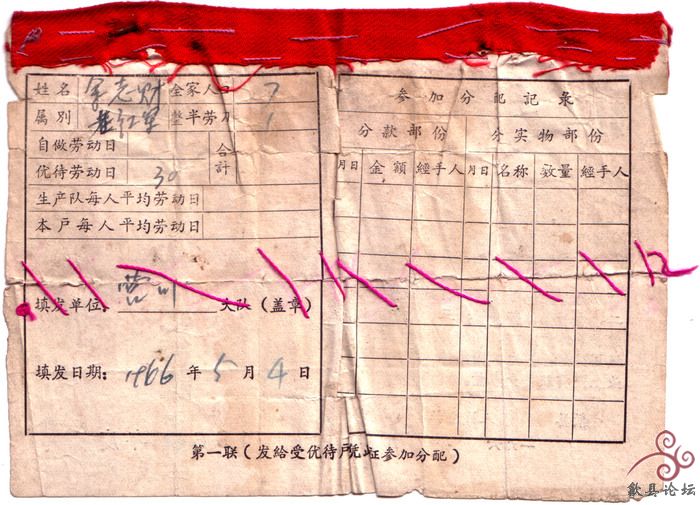 姓名 余志财 全家人口 7
属别 老红军 整半劳力 1
自做劳动日
合計
优待劳动日 30
生产队每人平均劳动日
本户每人平均劳动日
填发单位: 营川 大队(盖章)
填发日期: 1966 年 5 月 4 日
参加分配記录
分款部份 分实物部份
月日 金额 經手人 月日 名称 数量 經手人
第一联(发給受优待戶凭証参加分配)
歙县论坛